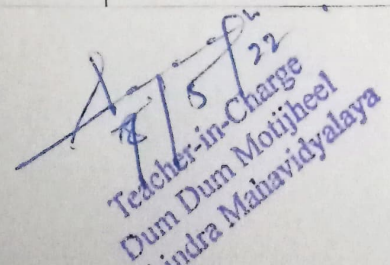 8/5/22
Teacher-in-Charge
Dum Dum Motijheel
indra Mahavidyalaya